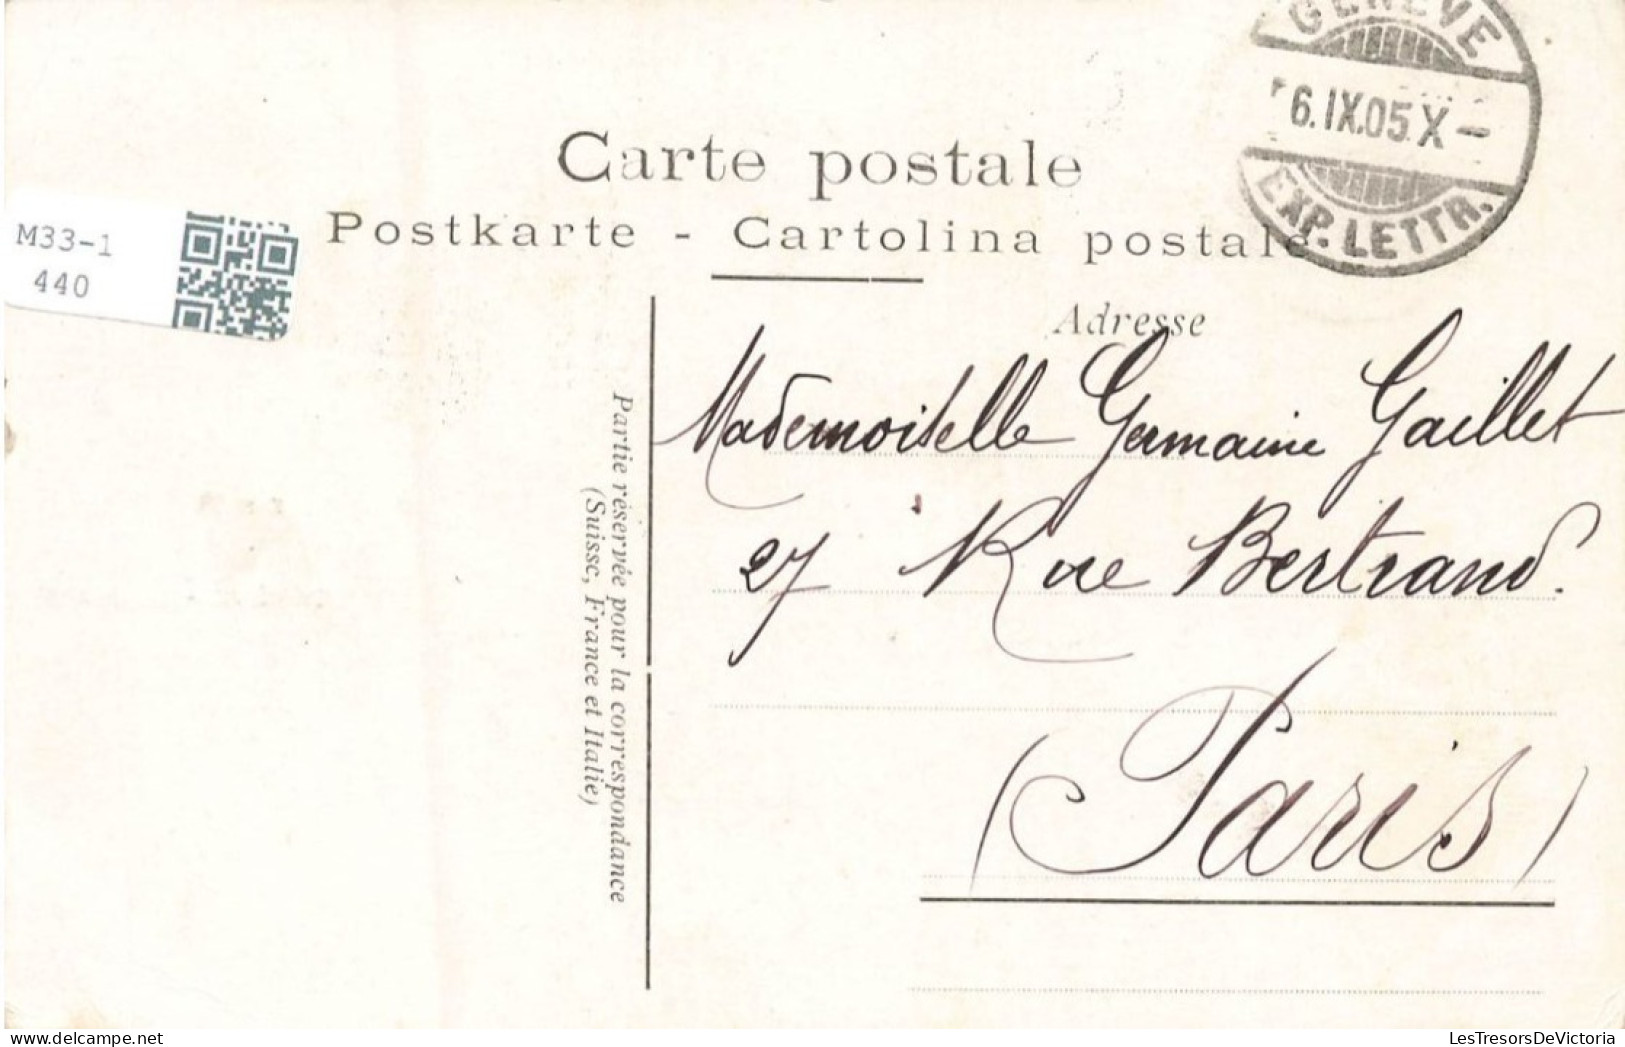 GENEVE
6.IX.05.X–
EXP. LETTR.
Carte postale
Postkarte - Cartolina postale
M33-1
440
Adresse
Mademoiselle Germaine Gaillet
27 Rue Bertrand.
(Paris)
Partie réservée pour la correspondance
(Suisse, France et Italie)
LesTresorsDeVictoria